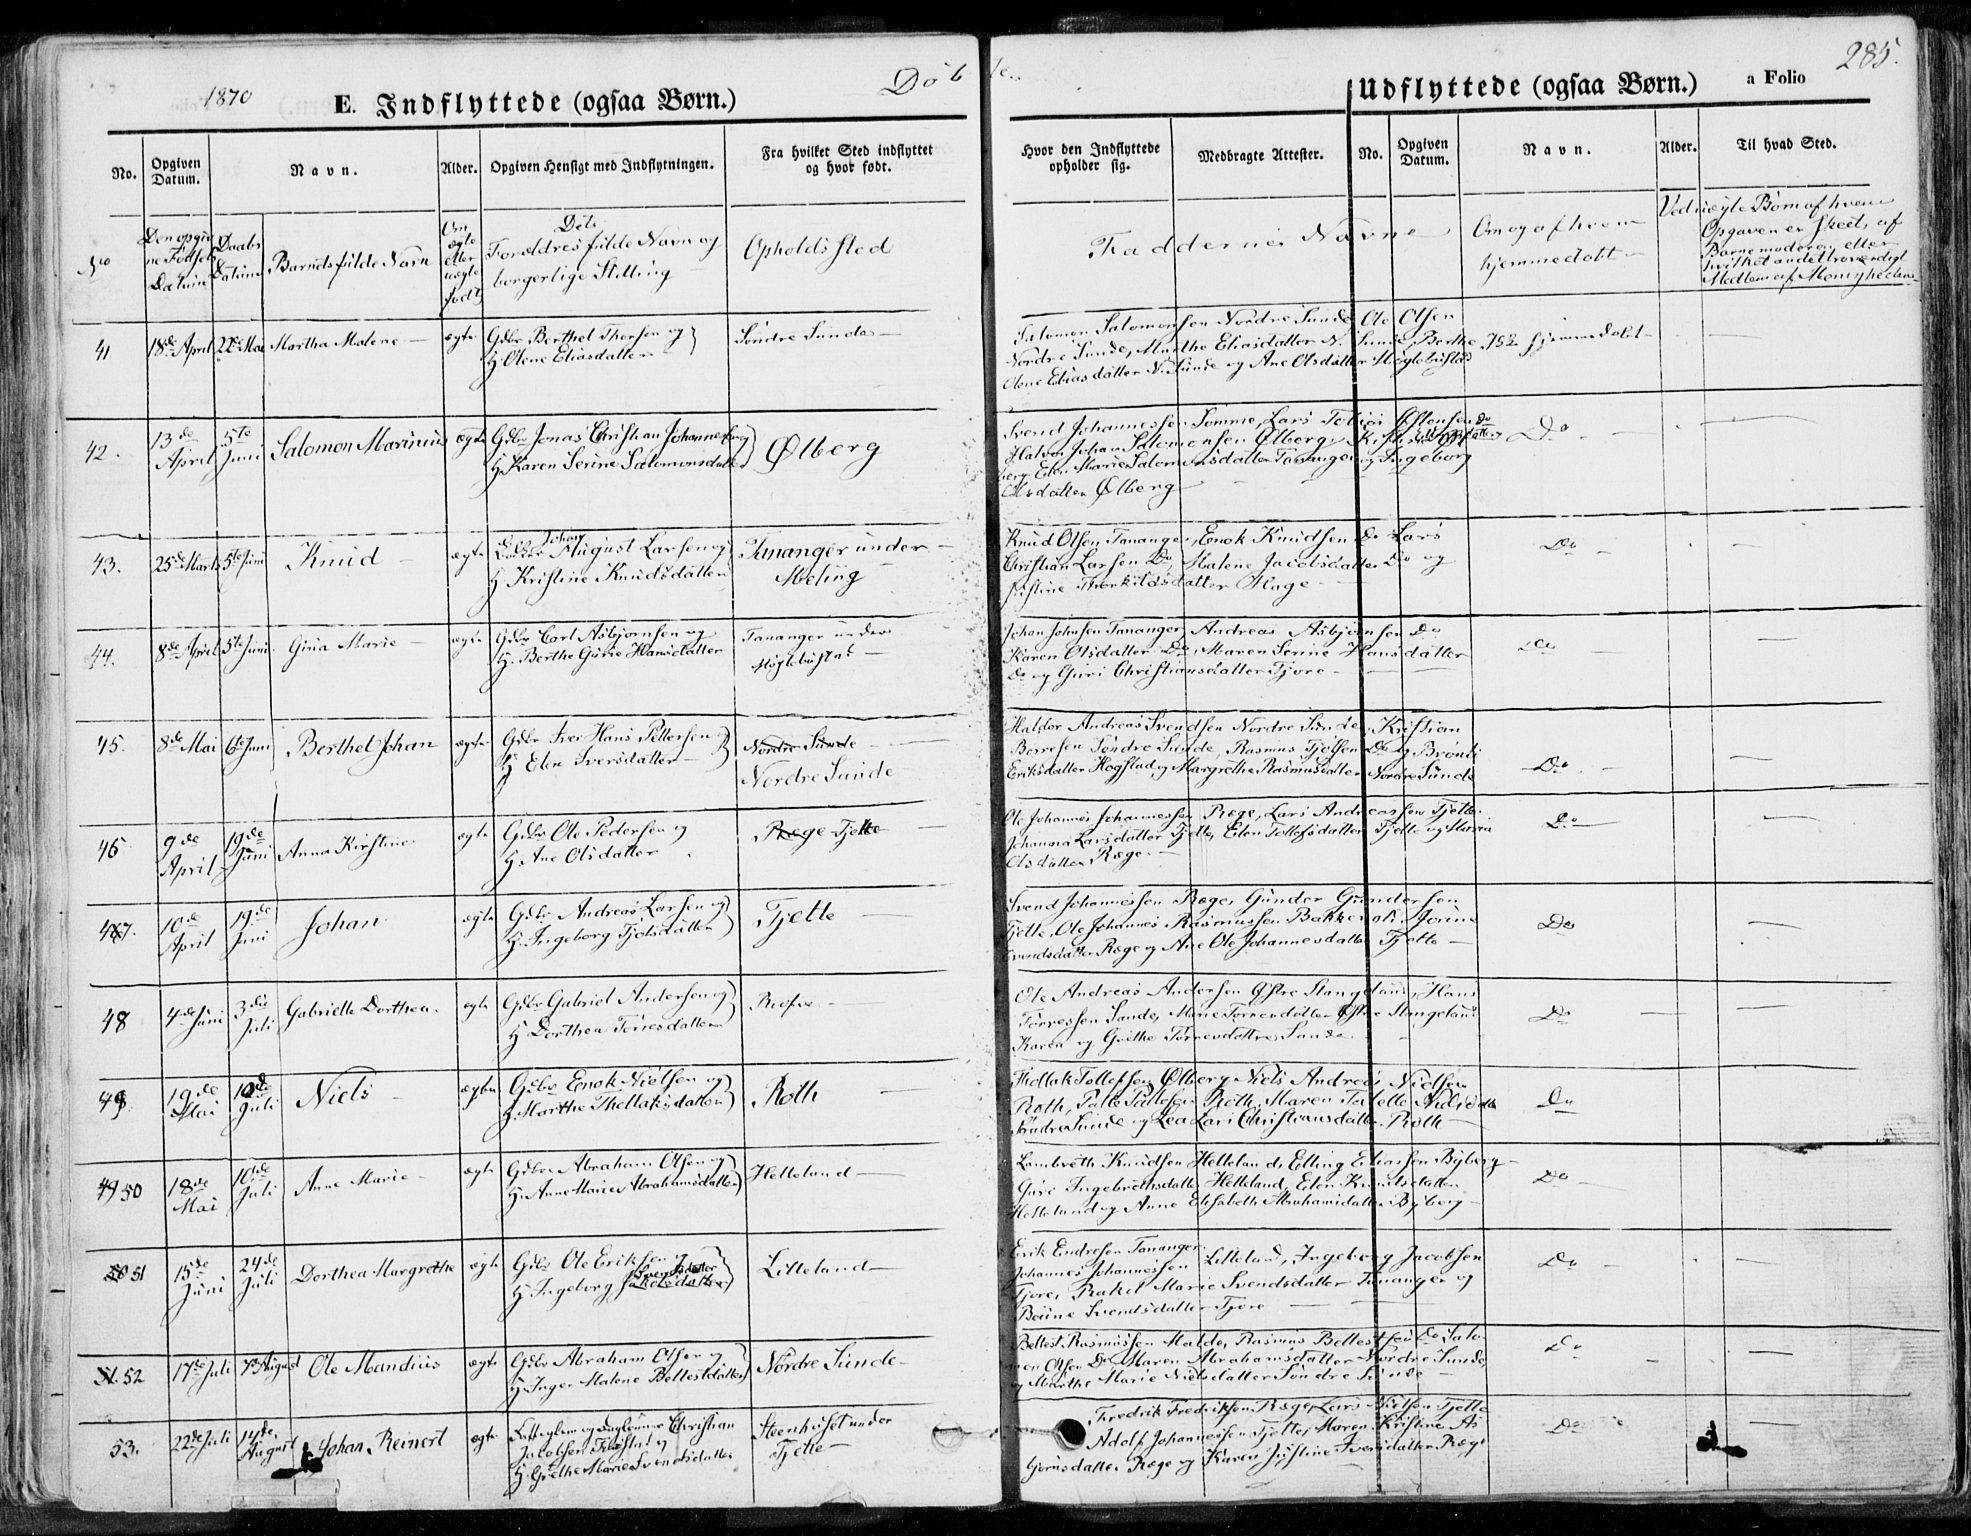 1870
E. Indflyttede (ogsaa Børn.)
Døbte.
Udflyttede (ogsaa Børn.)
a Folio
285.
No.
Opgiven Datum.
Navn.
Alder.
Opgiven Hensigt med Indflytningen.
Fra hvilket Sted indflyttet og hvor født.
Hvor den Indflyttede opholder sig.
Medbragte Attester.
No.
Opgiven Datum.
Navn.
Alder.
Til hvad Sted.
No
Den opgivne Fødsels Datum
Daabs Datum
Barnets fulde Navn
Om ægte eller uægte født
Dets Forældres fulde Navn og borgerlige Stilling
Opholdssted
Faddernes Navne
Om og af hvem hjemmedøbt
Ved uægte Børn af hvem
Opgaven er skeet, af
Barnemoderen eller
hvilket andet troværdigt
Medlem af Menigheden
41
18de April
22de Mai
Martha Malene
ægte
Gdbr Berthel Thorsen og
H. Olene Eliasdatter
Søndre Sunde
Salomon Salomonsen Nordre Sunde, Ole Olsen
Nordre Sunde, Marthe Eliasdatter N. Sunde, Berthe
Olene Eliasdatter N. Sunde og Ane Olsdatter Myglebustad
hjemmedøbt
42.
13de April
5te Juni
Salomon Marinius
ægte
Gdbr Jonas Christian Johannesen og
H. Karen Serine Salomonsdatter
Ølberg
Svend Johannessen Somme, Lars Tobias Østensen Do
Halvor Johan Salomonsen Ølberg,
berg, Elen Marie Salomonsdatter Tananger og Ingeborg
Olsdatter Ølberg
Do
43.
25de Marts
5te Juni
Knud
ægte
Johan
August Larsen og
H. Kristine Knudsdatter
Tananger under
Meling
Knud Olsen Tananger, Enok Knudsen Do Lars
Christian Larsen Do, Malene Jacobsdatter Do og
Justine Thorkildsdatter Hage
Do
44.
8de April
5te Juni
Gina Marie
ægte
Gdbr Carl Asbjørnsen og
H. Berthe Gurie Hansdatter
Tananger under
Myglebustad
Johan Johnsen Tananger, Andreas Asbjørnsen Do
Karen Olsdatter Do, Maren Serine Hansdatter
Do og Guri Christiansdatter Tjore
Do
45.
8de Mai
6te Juni
Berthel Johan
ægte
Gdbr Iver Hans Pettersen og
H. Elen Iversdatter
Nordre Sunde
Nordre Sunde
Haldor Andreas Svendsen Nordre Sunde, Kristian
Børresen Søndre Sunde, Rasmus Tjølsen Do og
Eriksdatter Hogstad og Margrethe Rasmusdatter Nordre Sunde
Do
46
9de April
19de Juni
Anna Kirstine
ægte
Gdbr Ole Pedersen og
H. Ane Olsdatter
Ræge Tjelte
Ole Johannes Johannessen Ræge, Lars Andreassen Tjelte
Johanna Larsdatter Tjelte, Elen Tollefsdatter Tjelte og Maria
Olsdatter Ræge
Do
47.
10de April
19de Juni
Johan
ægte
Gdbr Andreas Larsen og
H. Ingeborg Tjølsdatter
Tjelte
Svend Johannessen Ræge, Gunder Gundersen
Tjelte, Ole Johannes Rasmussen Bakke, Jorine
Svendsdatter Ræge og Ane Ole Johannesdatter Tjelte
Do
48
4de Juni
3die Juli
Gabrielle Dorthea.
ægte
Gdbr Gabriel Andersen og
H. Dorthea Torresdatter
Risfø
Ole Andreas Andersen Østre Stangeland, Hans
Torressen Sande, Marie Torresdatter Østre Stangeland
Karen og Grethe Torresdøttre Sande
Do
49
19de Mai
10de Juli
Niels
ægte
Gdbr Enok Nielsen og
H. Marthe Thollaksdatter
Roth
Thollak Tollefsen Ølberg, Niels Andreas Nielsen
Roth, Palle Pallesen Roth, Maren Nielsdtr
Søndre Sunde og Lea Lars Christiansdatter Roth
Do
49 50
18de Mai
10de Juli
Anne Marie
ægte
Gdbr Abraham Olsen og
H. Anne Marie Abrahamsdatter
Helleland
Lambreth Knudsen Helleland, Elling Eliassen Byberg
Guri Ingebrethsdatter Helleland, Elen Knudsdatter
Helleland og Anne Elisabeth Abrahamsdatter Byberg
Do
50 51
15de Juni
24de Juli
Dorthea Margrethe
ægte
Gdbr Ole Eriksen og
H. Ingeborg Svendsdatter
Litleland
Erik Endresen Tananger
Johannes Johannessen Litleland, Ingeborg Jacobsen
Tjore, Rakel Marie Svendsdatter Tananger og
Svendsdatter Tjore
Do
51. 52
17de Juli
7de August
Ole Mandius
ægte
Gdbr Abraham Olsen og
H. Inger Malene Bellestdatter
Nordre Sunde
Bellest Rasmussen Malde, Rasmus Bellestsen Do Salo-
mon Olsen Do Maren Abrahamsdatter Nordre Sunde,
og Marthe Marie Nielsdatter Søndre Sunde
Do
53.
22de Juli
14de August
Johan Reinert
ægte
og Daglønner Christian
Jacobsen og
H. Grethe Marie Svendsdatter
Steenhuset under
Tjelte
Fredrik Fredriksen Ræge, Lars Nielsen Tjelte
Adolf Johannessen Tjelte, Maren Kristine As
bjørnsdatter Ræge og Karen Justine Iversdatter Ræge
Do